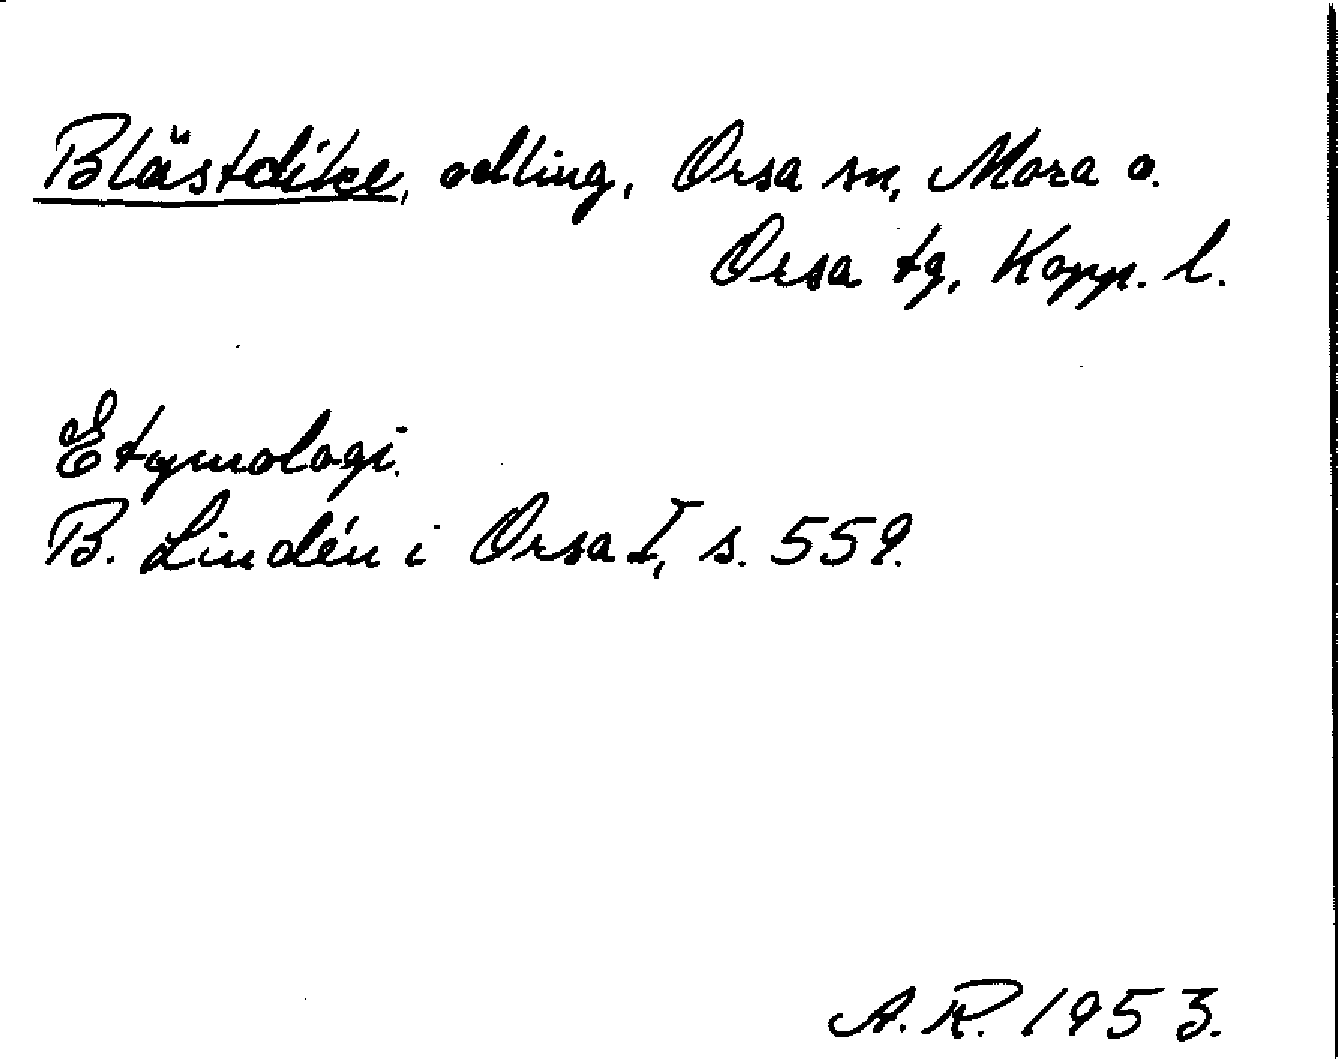 Blästdike, odling, Orsa sn, Mora o.
Orsa tg, Kopp. l.
Etymologi.
B. Lindén i Orsa I, s. 559.
A. R. 1953.